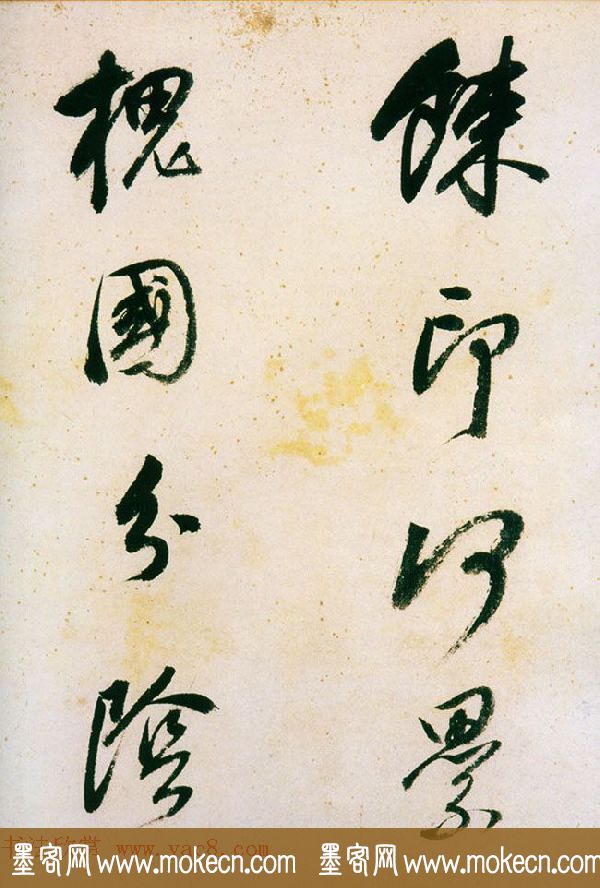 印何累
槐國分陰
书法欣赏 www.yac8.com
墨客网www.mokecn.com 墨客网www.mokecn.com